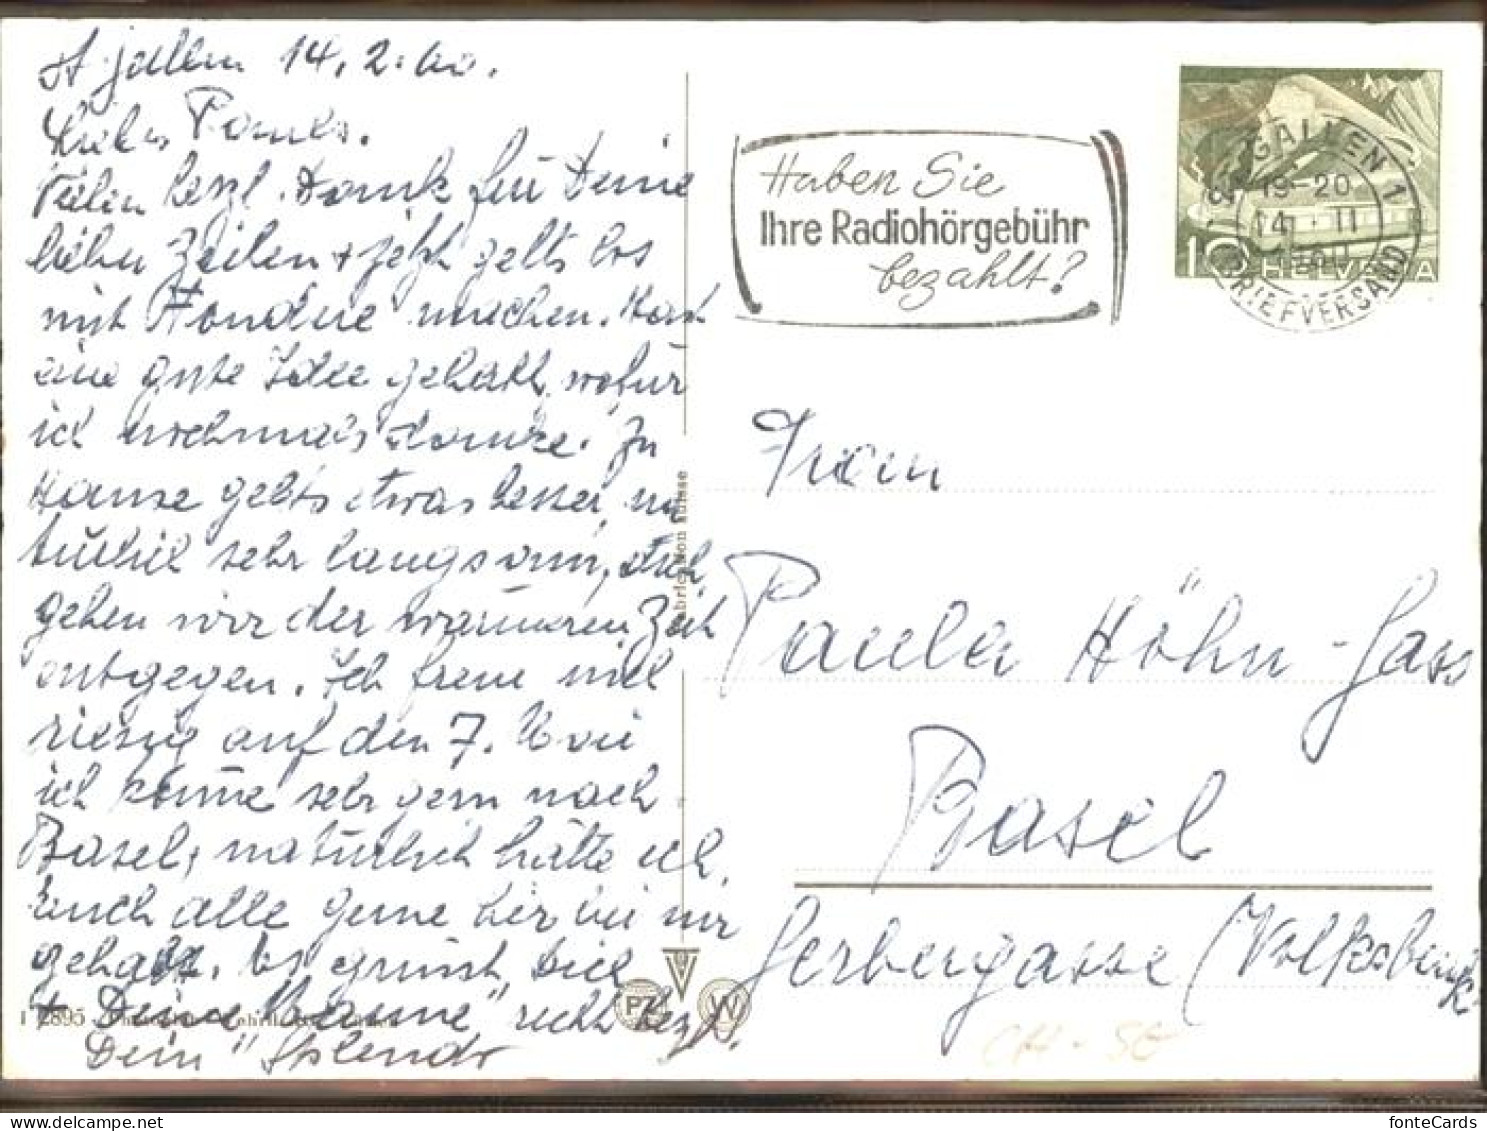 St Gallen 14. 2. 60.
Liebes
Vielen herzl. Dank für Deine
lieben Zeilen + jetzt gehts los
mit Fondue machen. Hast
eine gute Idee gehabt, wofür
ich nochmals danke. Zu
Hause gehts etwas besser, na
türlich sehr langsam, doch
gehen wir der wärmeren Zeit
entgegen. Ich freue mich
riesig auf den 7.
ich käme sehr gern nach
Basel, natürlich hätte ich
Euch alle gerne hier bei mir
gehabt. Es grüsst Dich
+ Deine "Banme" recht herzl.
Dein
Haben Sie
Ihre Radiohörgebühr
bezahlt?
ST. GALLEN 1
19-20
14. II
1960
BRIEFVERSAND
10 HELVETIA
Frau
Paula Höhn-Gass
Basel
Gerbergasse (Volksbank
PZ
W
CH - SG
fonteCards